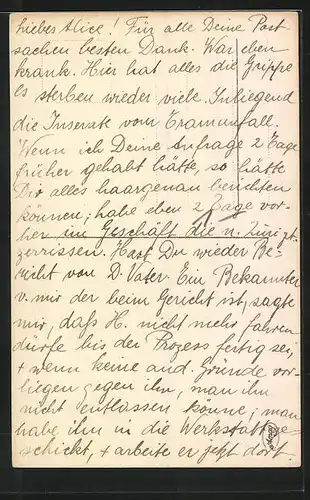 Liebes Alice! Für alle Deine Post-
sachen besten Dank. War eben
krank. Hier hat alles die Grippe
es sterben wieder viele. Inliegend
die Inserate vom Tramunfall.
Wenn ich Deine Anfrage 2 Tage
früher gehabt hätte, so hätte
Dir alles haargenau berichten
können; habe eben 2 Tage vor-
her im Geschäft die n. Züri ztg.
zerrissen. Hast Du wieder Be-
richt von D. Vater. Ein Bekannter
v. mir der beim Gericht ist, sagte
mir, dass H. nicht mehr fahren
dürfe bis der Prozess fertig sei,
+ wenn keine and. Gründe vor-
liegen gegen ihn, man ihn
nicht entlassen könne; man
habe ihn in die Werkstatt ge-
schickt, + arbeite er jetzt dort.